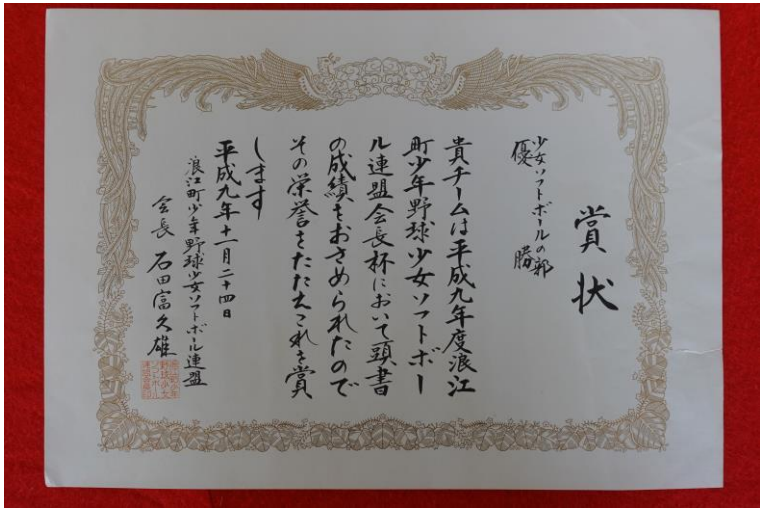 賞状
少女ソフトボールの部
優勝
貴チームは平成九年度浪江
町少年野球少女ソフトボー
ル連盟会長杯において頭書
の成績をおさめられたので
その栄誉をたたえこれを賞
します
平成九年十一月二十四日
浪江町少年野球少女ソフトボール連盟
会長 石田富久雄